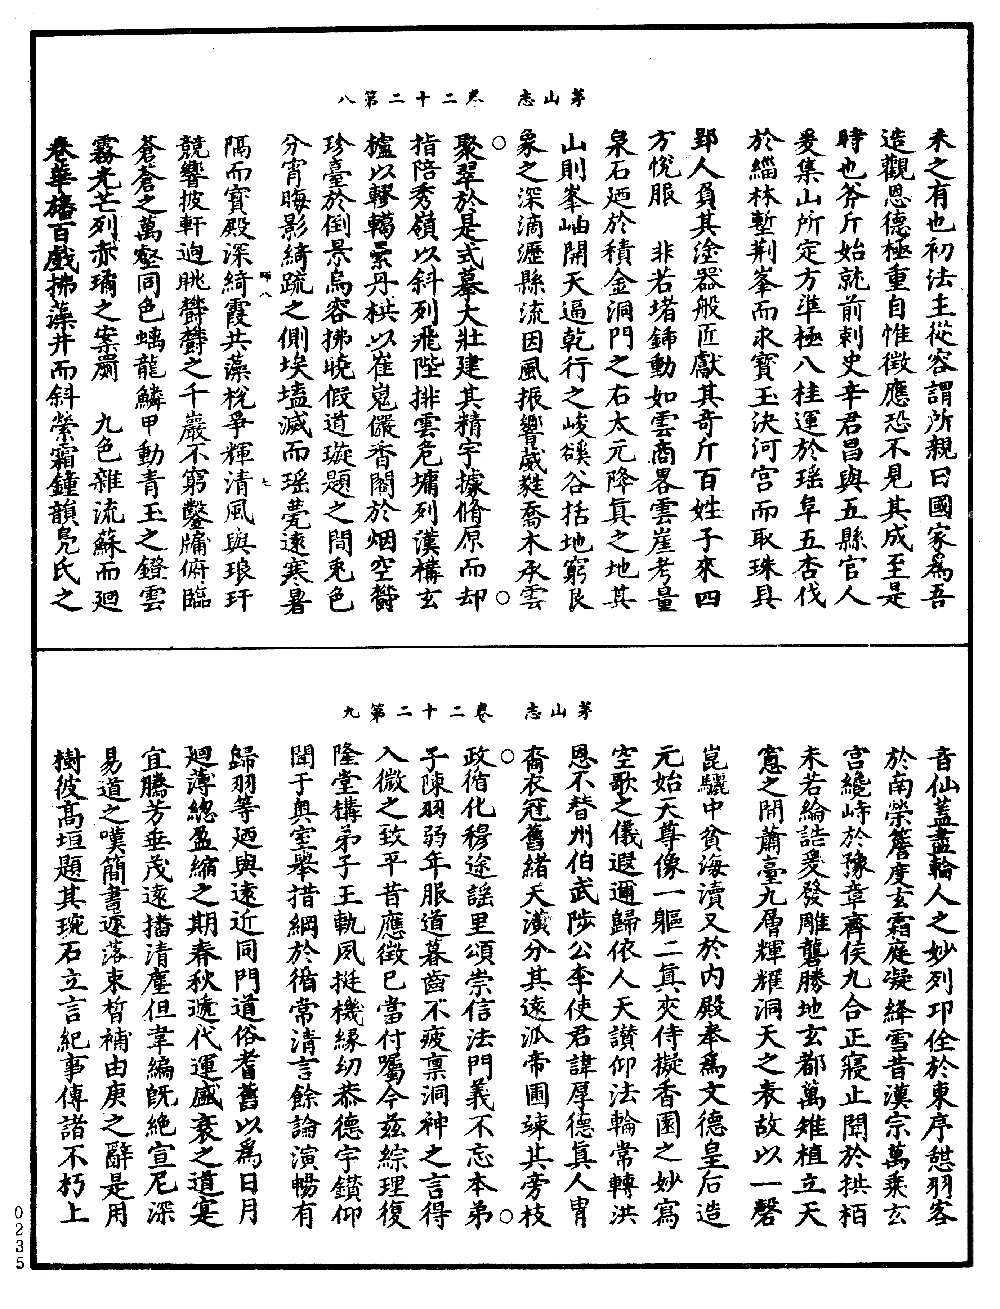 茅山志　卷二十二第八
未之有也初法主從容謂所親曰國家爲吾
造觀恩德極重自惟徵應恐不見其成至是
時也斧斤始就前刺史辛君昌與五縣官人
爰集山所定方準極八桂運於瑶阜五杏伐
於緇林塹荆峯而求寳玉決河宫而取珠具
郢人負其塗器般匠獻其奇斤百姓子來四
方悅服　非若堵鍤動如雲商畧雲崖考量
泉石廼於積金洞門之右太元降真之地其
山則峯岫開天逼乾行之峻磎谷括地窮艮
象之深滴瀝縣流因風振響葳蕤喬木承雲
聚翠於是式摹大壯建其精宇據脩原而却
指陪秀嶺以斜列飛陛排雲危墉列漢構玄
櫨以轇轕累丹栱以崔嵬儼香閣於烟空欎
珍臺於倒景烏容拂曉假道璇題之間兎色
分宵晦影綺疏之側埃壒滅而瑶甍遠寒暑
隔而寳殿深綺霞共藻梲爭輝清風與琅玕
競響披軒逈眺欎欎之千巖不窮鑿牖俯臨
蒼蒼之萬壑同色螭龍鱗甲動青玉之鐙雲
霧光芒列赤璚之案罽　九色雜流蘇而廻
卷華　百戲拂藻井而斜縈霜鐘韻凫氏之
師八
七
茅山志　卷二十二第九
音仙蓋盡輪人之妙列卭佺於東序憇羽客
於南榮簷度玄霜庭凝絳雪昔漢宗萬乘玄
宫纔峙於豫章齊侯九合正寢止聞於拱栢
未若綸誥爰發雕甍勝地玄都萬雉植立天
䆫之間蕭臺九層輝耀洞天之表故以一磬
崑驪中貧海瀆又於内殿奉爲文德皇后造
元始天尊像一軀二真夾侍擬香園之妙寫
空歌之儀遐邇歸依人天讃仰法輪常轉洪
恩不替州伯武陟公李使君諱厚德真人胄
裔衣冠舊緒天潢分其遠派帝圃竦其旁枝
政脩化穆途謡里頌崇信法門義不忘本弟
子陳羽弱年服道暮齒不疲禀洞神之言得
入微之致平昔應徵已當付囑今兹綜理復
隆堂構弟子王軌夙挺機緣幼恭德宇鑚仰
聞于奥室舉措綱於循常清言餘論演暢有
歸羽等廼與遠近同門道俗耆舊以爲日月
廻薄總盈縮之期春秋遞代運盛衰之道寔
宜騰芳垂茂遠播清塵但韋編旣絶宣尼深
易道之嘆簡書遞落束晳補由庚之辭是用
樹彼髙垣題其琬石立言紀事傳諸不朽上
0235